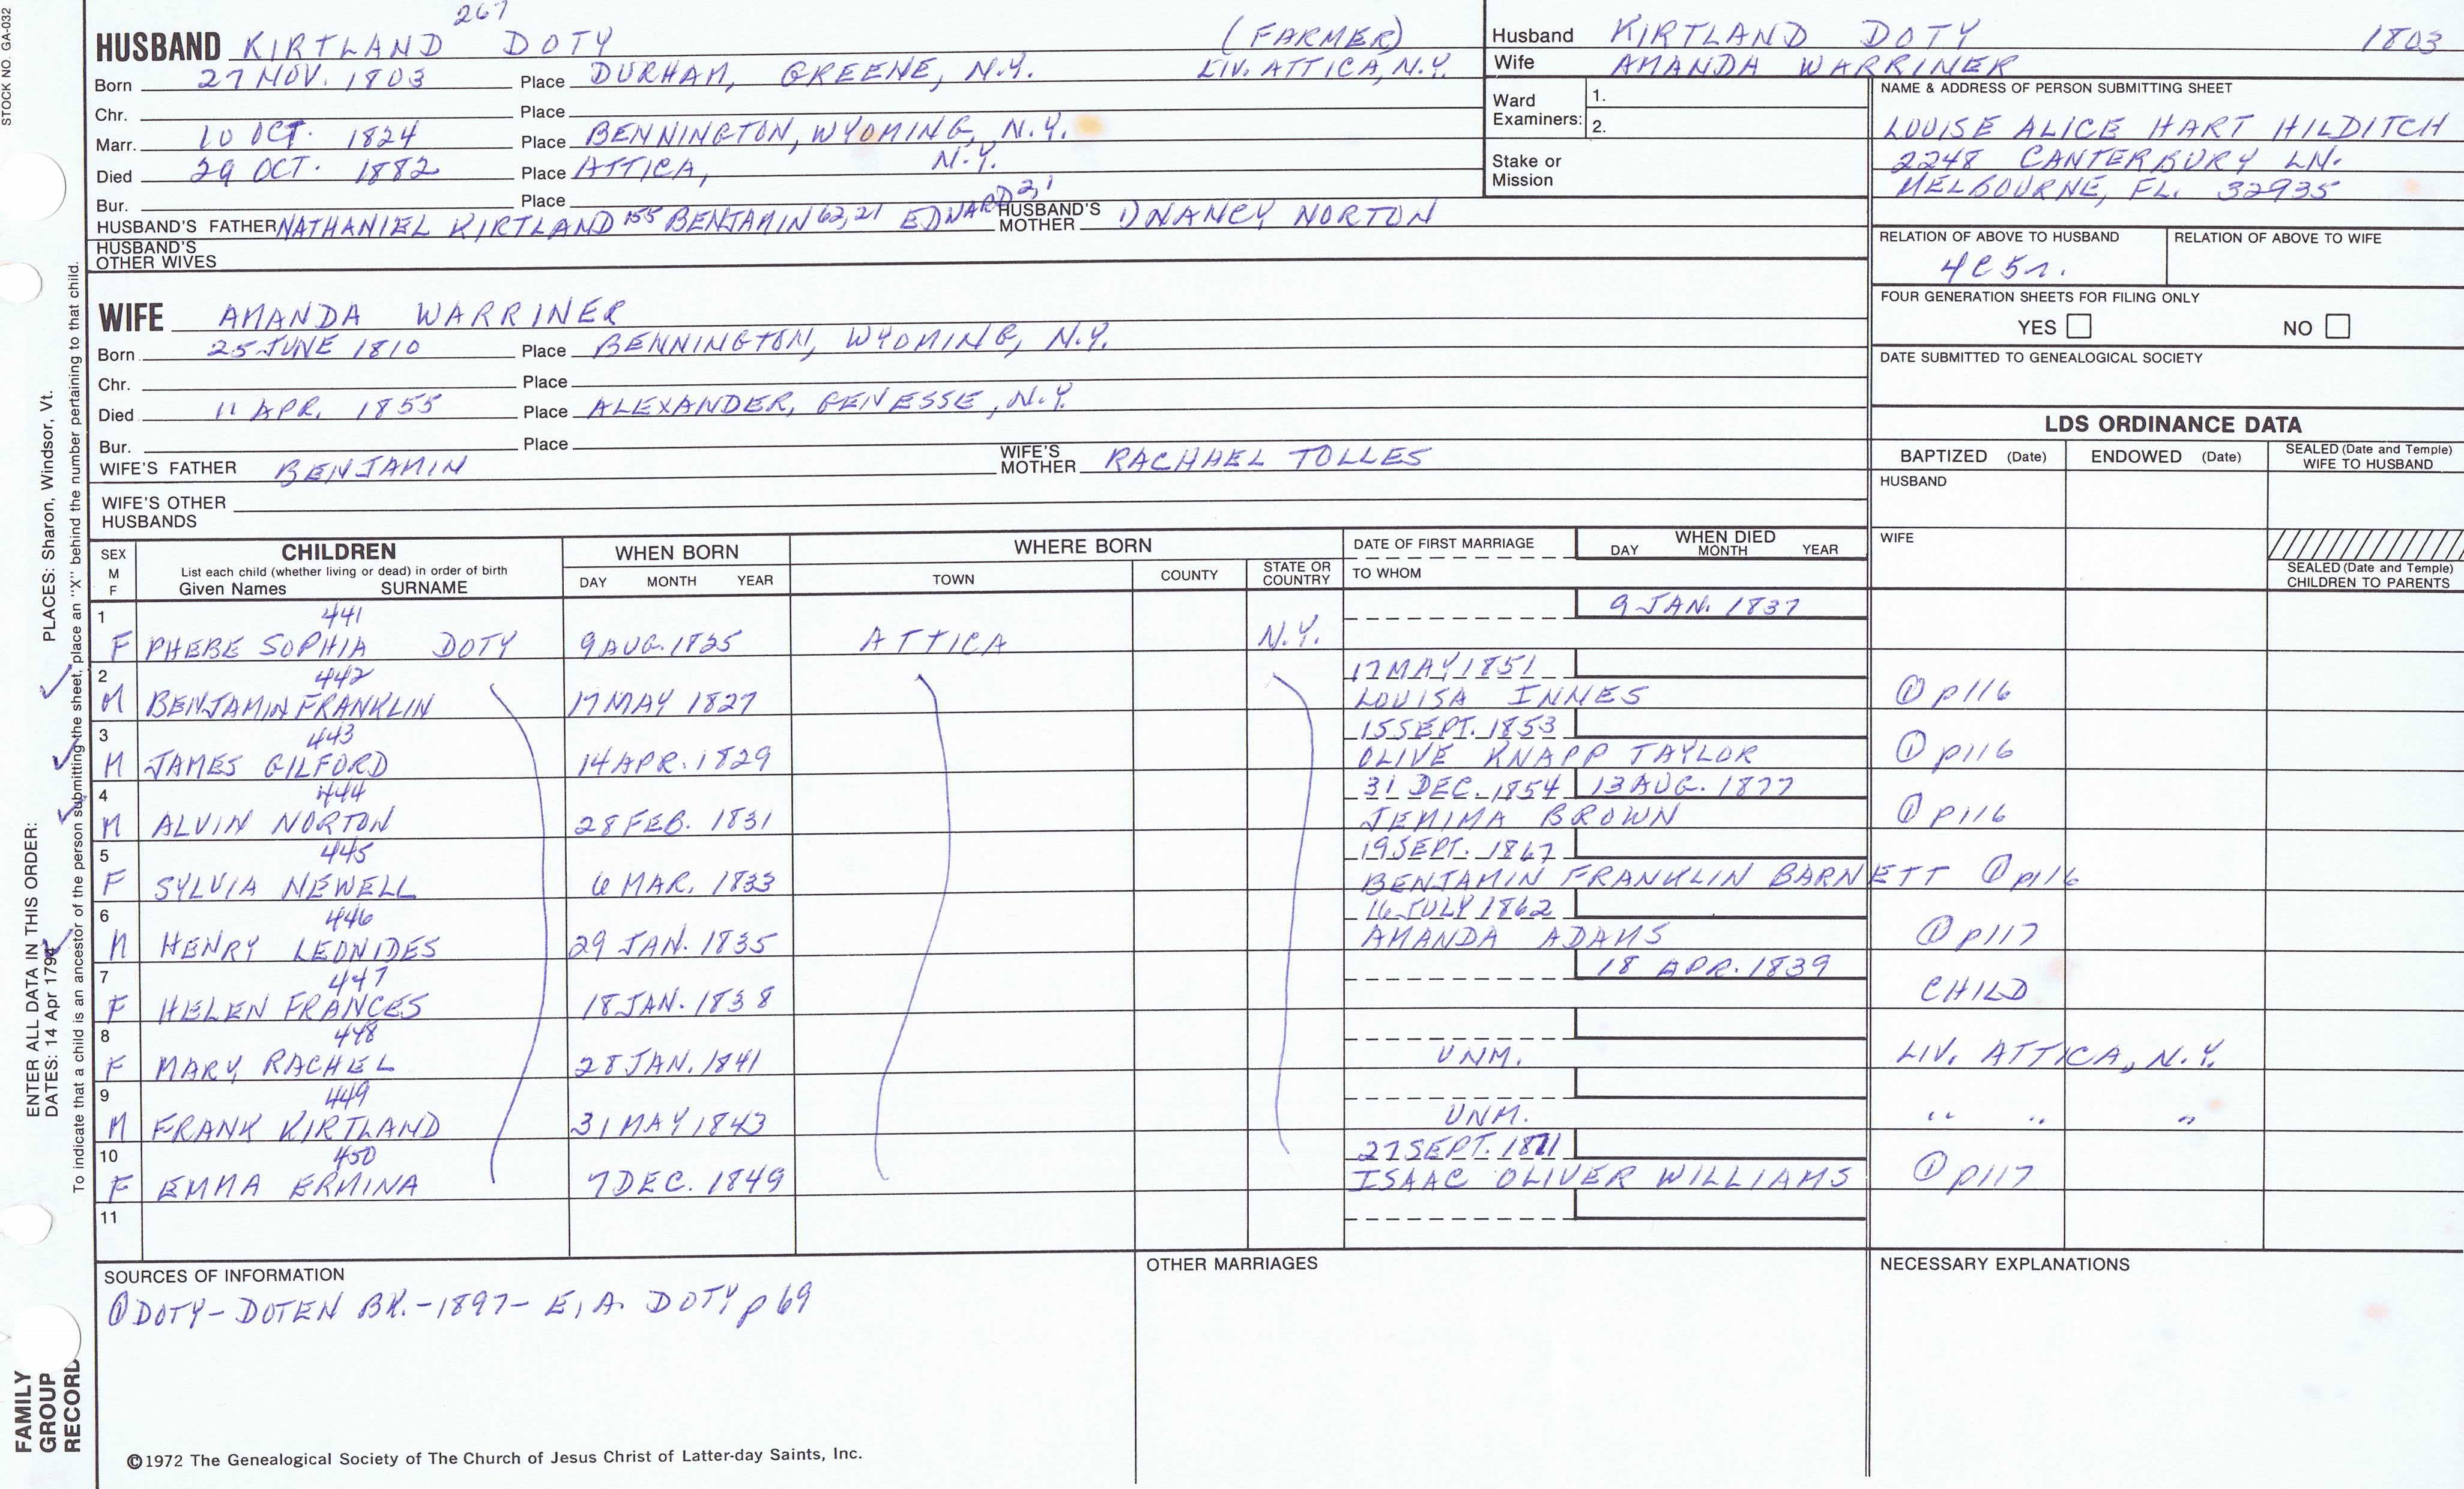 STOCK NO. GA-032
267
HUSBAND KIRTLAND DOTY (FARMER)
Born 27 NOV. 1803 Place DURHAM, GREENE, N.Y. LIV. ATTICA, N.Y.
Chr. Place
Marr. 10 OCT. 1824 Place BENNINGTON, WYOMING, N.Y.
Died 29 OCT. 1882 Place ATTICA, N.Y.
Bur. Place
HUSBAND'S FATHER NATHANIEL KIRTLAND 155 BENJAMIN 62, 21 EDWARD 2, 1 HUSBAND'S MOTHER 1) NANCY NORTON
HUSBAND'S OTHER WIVES
WIFE AMANDA WARRINER
Born 25 JUNE 1810 Place BENNINGTON, WYOMING, N.Y.
Chr. Place
Died 11 APR. 1855 Place ALEXANDER, GENESSE, N.Y.
Bur. Place
WIFE'S FATHER BENJAMIN WIFE'S MOTHER RACHAEL TOLLES
WIFE'S OTHER HUSBANDS
Husband KIRTLAND DOTY 1803
Wife AMANDA WARRINER
Ward Examiners: 1.
2.
Stake or Mission
NAME & ADDRESS OF PERSON SUBMITTING SHEET
LOUISE ALICE HART HILDITCH
2248 CANTERBURY LN.
MELBOURNE, FL. 32935
RELATION OF ABOVE TO HUSBAND RELATION OF ABOVE TO WIFE
4C5r.
FOUR GENERATION SHEETS FOR FILING ONLY
YES NO
DATE SUBMITTED TO GENEALOGICAL SOCIETY
LDS ORDINANCE DATA
BAPTIZED (Date) ENDOWED (Date) SEALED (Date and Temple) WIFE TO HUSBAND
HUSBAND
WIFE
SEALED (Date and Temple) CHILDREN TO PARENTS
SEX M F CHILDREN WHEN BORN WHERE BORN DATE OF FIRST MARRIAGE WHEN DIED
List each child (whether living or dead) in order of birth
Given Names SURNAME DAY MONTH YEAR TOWN COUNTY STATE OR COUNTRY TO WHOM DAY MONTH YEAR
1 441 9 JAN. 1837
F PHEBE SOPHIA DOTY 9 AUG. 1825 ATTICA N.Y.
2 442 17 MAY 1851
M BENJAMIN FRANKLIN 17 MAY 1827 LOUISA INNES ① p116
3 443 15 SEPT. 1853
M JAMES GILFORD 14 APR. 1829 OLIVE KNAPP TAYLOR ① p116
4 444 31 DEC. 1854 13 AUG. 1877
M ALVIN NORTON 28 FEB. 1831 JEMIMA BROWN ① p116
5 445 19 SEPT. 1867
F SYLVIA NEWELL 6 MAR. 1833 BENJAMIN FRANKLIN BARNETT ① p116
6 446 16 JULY 1862
M HENRY LEONIDES 29 JAN. 1835 AMANDA ADAMS ① p117
7 447 18 APR. 1839
F HELEN FRANCES 18 JAN. 1838 CHILD
8 448
F MARY RACHEL 28 JAN. 1841 UNM. LIV. ATTICA, N.Y.
9 449
M FRANK KIRTLAND 31 MAY 1843 UNM. " " "
10 450 27 SEPT. 1871
F EMMA ERMINA 7 DEC. 1849 ISAAC OLIVER WILLIAMS ① p117
11
SOURCES OF INFORMATION OTHER MARRIAGES NECESSARY EXPLANATIONS
① DOTY-DOTEN BK.-1897- E.A. DOTY p69
©1972 The Genealogical Society of The Church of Jesus Christ of Latter-day Saints, Inc.
FAMILY GROUP RECORD
ENTER ALL DATA IN THIS ORDER: PLACES: Sharon, Windsor, Vt.
DATES: 14 Apr 1794
To indicate that a child is an ancestor of the person submitting the sheet, place an "X" behind the number pertaining to that child.